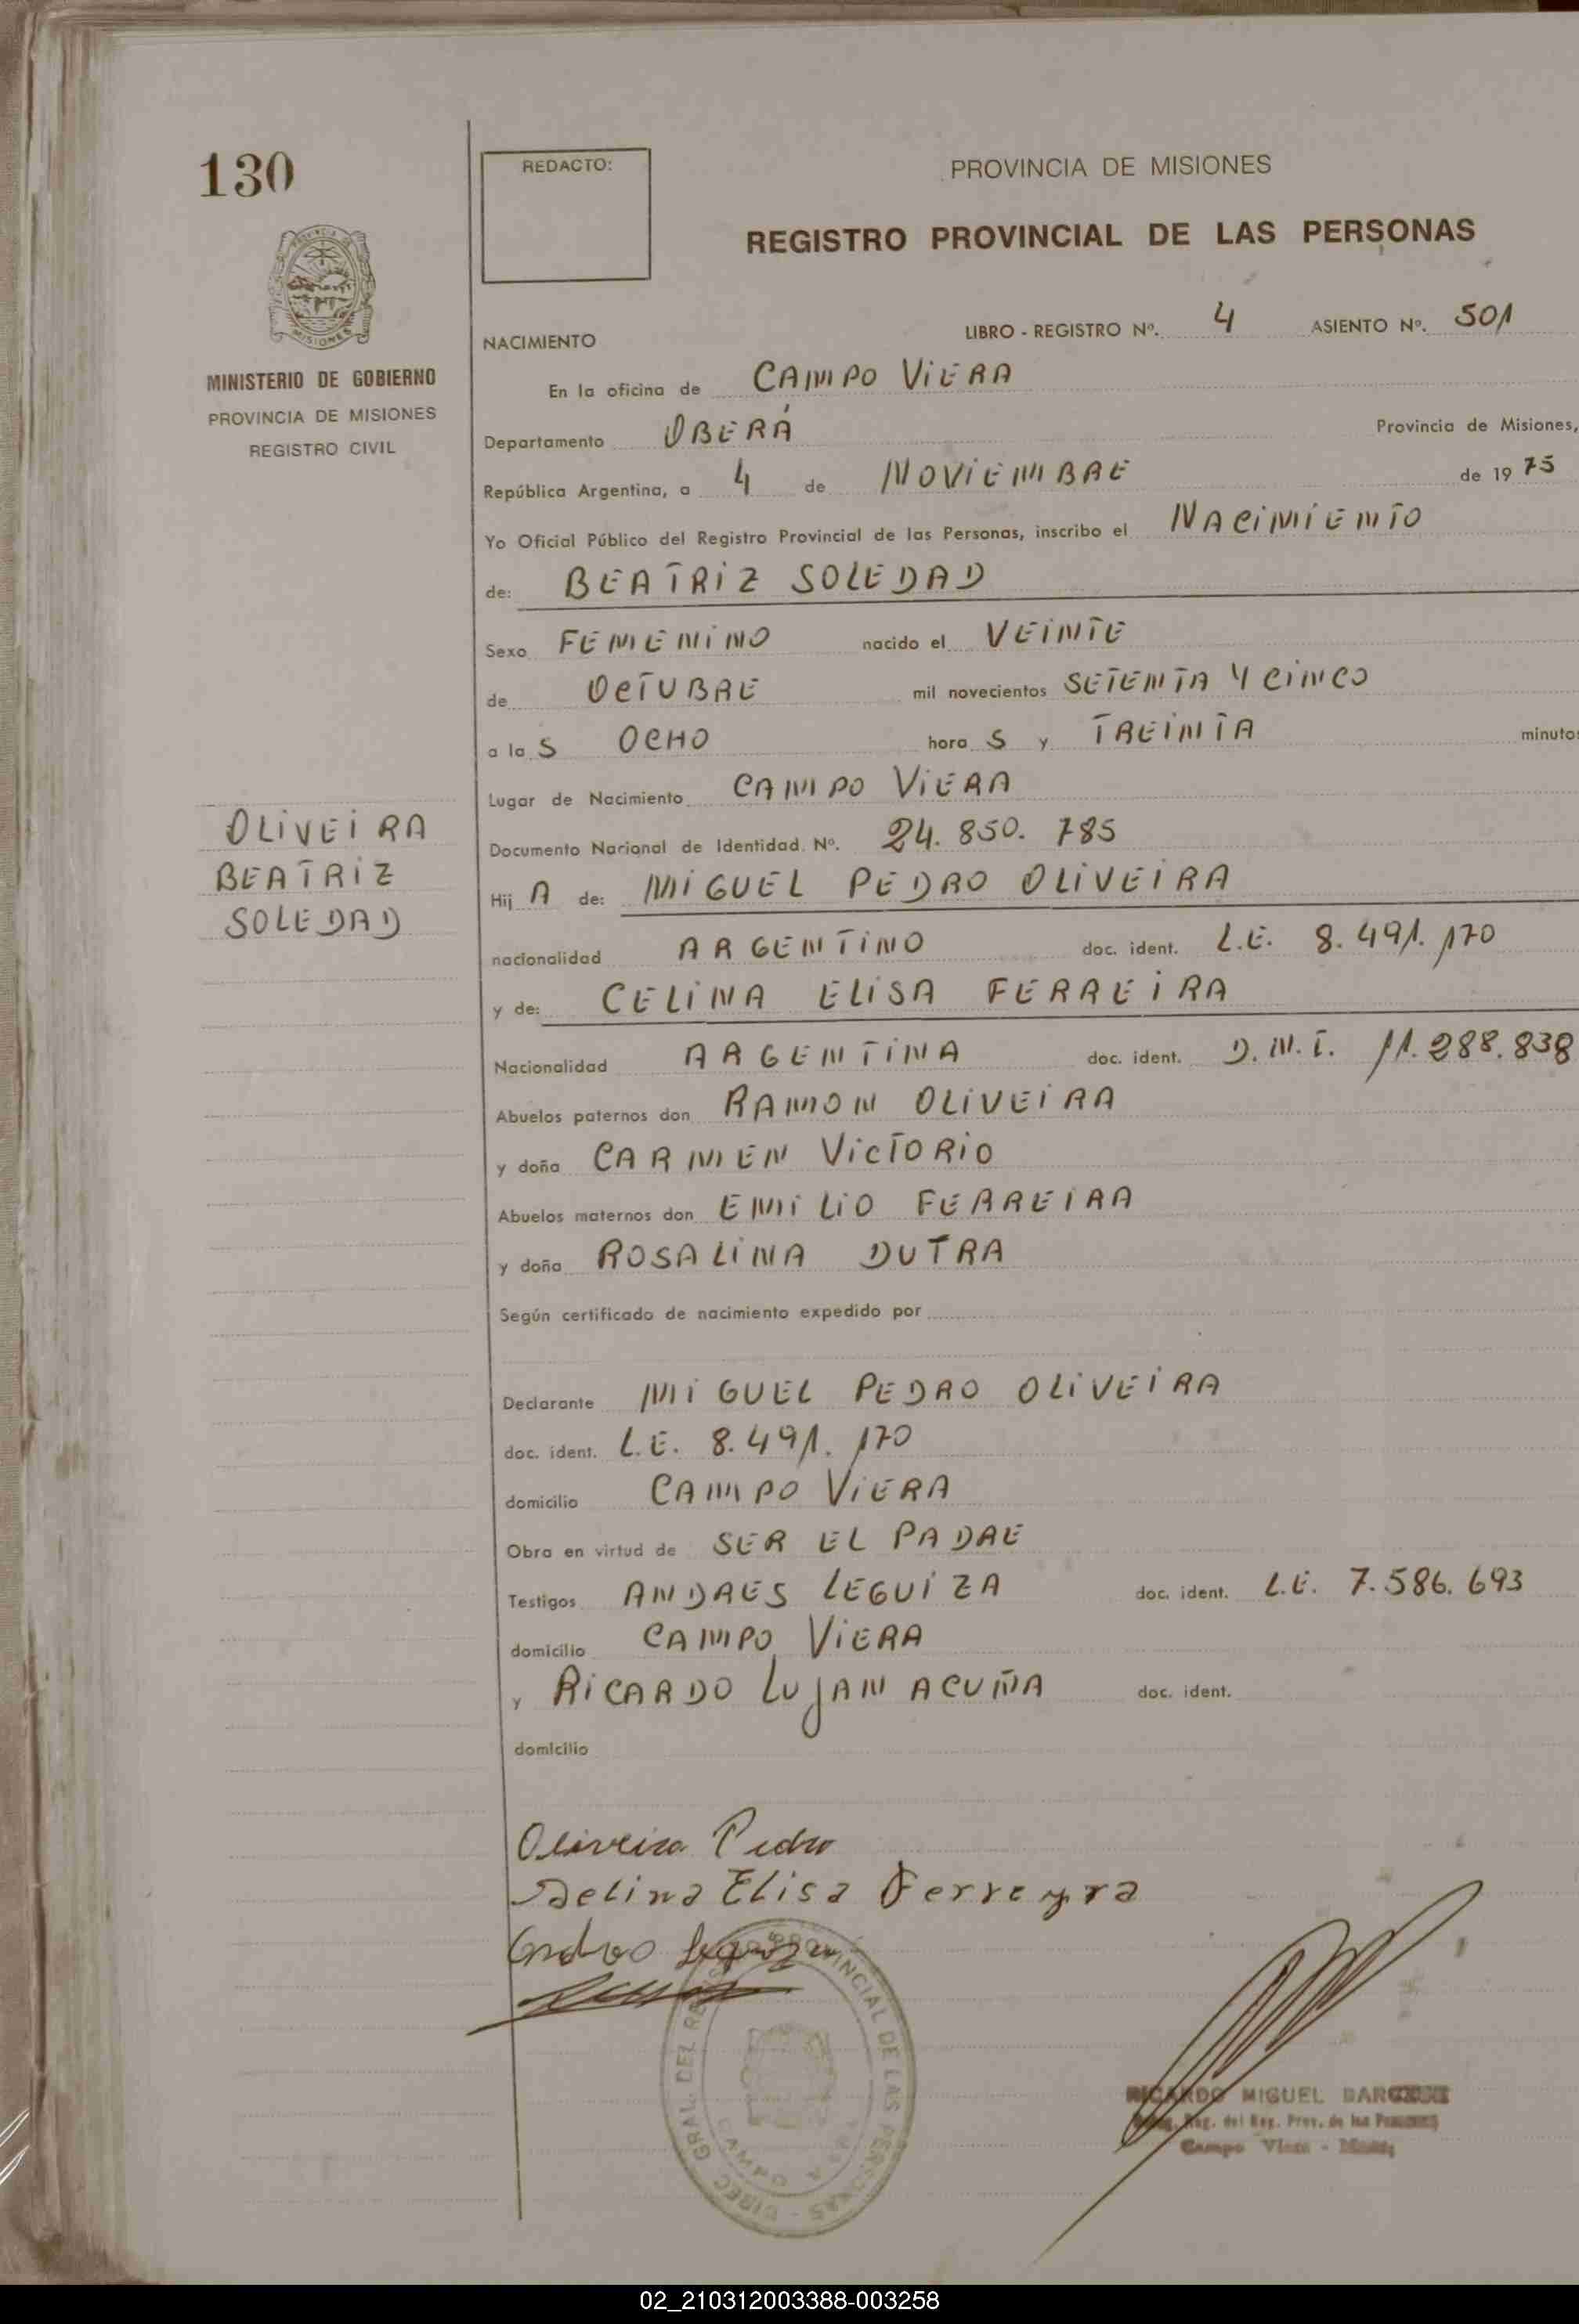 130
REDACTO:
PROVINCIA DE MISIONES
REGISTRO PROVINCIAL DE LAS PERSONAS
MISIONES
MINISTERIO DE GOBIERNO
PROVINCIA DE MISIONES
REGISTRO CIVIL
NACIMIENTO
LIBRO - REGISTRO Nº. 4 ASIENTO Nº. 501
En la oficina de CAMPO VIERA
Departamento OBERÁ Provincia de Misiones,
República Argentina, a 4 de NOVIEMBRE de 1975
Yo Oficial Público del Registro Provincial de las Personas, inscribo el NACIMIENTO
de: BEATRIZ SOLEDAD
Sexo FEMENINO nacido el VEINTE
de OCTUBRE mil novecientos SETENTA Y CINCO
a las OCHO horas y TREINTA minutos
Lugar de Nacimiento CAMPO VIERA
OLIVEIRA
BEATRIZ
SOLEDAD
Documento Nacional de Identidad Nº. 24.850.785
Hij A de: MIGUEL PEDRO OLIVEIRA
nacionalidad ARGENTINO doc. ident. L.E. 8.491.170
y de: CELINA ELISA FERREIRA
Nacionalidad ARGENTINA doc. ident. D.N.I. 11.288.838
Abuelos paternos don RAMON OLIVEIRA
y doña CARMEN VICTORIO
Abuelos maternos don EMILIO FERREIRA
y doña ROSALINA DUTRA
Según certificado de nacimiento expedido por
Declarante MIGUEL PEDRO OLIVEIRA
doc. ident. L.E. 8.491.170
domicilio CAMPO VIERA
Obra en virtud de SER EL PADRE
Testigos ANDRES LEGUIZA doc. ident. L.E. 7.586.693
domicilio CAMPO VIERA
y RICARDO LUJAN ACUÑA doc. ident.
domicilio
Oliveira Pedro
Selina Elisa Ferreyra
DIREC. GRAL. DEL REGISTRO PROVINCIAL DE LAS PERSONAS
CAMPO VIERA
RICARDO MIGUEL
Reg. del Reg. Prov. de las Personas
Campo Viera
02_210312003388-003258